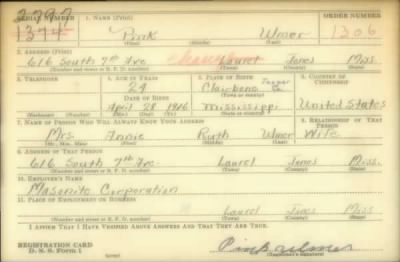 2797
SERIAL NUMBER 1. NAME (Print) ORDER NUMBER
1374 Pink Ulmer 1306
(First) (Middle) (Last)
2. ADDRESS (Print)
616 South 7th Ave Laurel Jones Miss.
(Number and street or R. F. D. number) (Town) (County) (State)
3. TELEPHONE 4. AGE IN YEARS 5. PLACE OF BIRTH 6. COUNTRY OF CITIZENSHIP
24 Clairbone Jasper Co.
DATE OF BIRTH (Town or county)
April 28 1916 Mississippi United States
(Exchange) (Number) (Mo.) (Day) (Yr.) (State or country)
7. NAME OF PERSON WHO WILL ALWAYS KNOW YOUR ADDRESS 8. RELATIONSHIP OF THAT PERSON
Mrs. Annie Ruth Ulmer Wife
(Mr., Mrs., Miss) (First) (Middle) (Last)
9. ADDRESS OF THAT PERSON
616 South 7th Ave. Laurel Jones Miss.
(Number and street or R. F. D. number) (Town) (County) (State)
10. EMPLOYER'S NAME
Masonite Corporation
11. PLACE OF EMPLOYMENT OR BUSINESS
Laurel Jones Miss
(Number and street or R. F. D. number) (Town) (County) (State)
I AFFIRM THAT I HAVE VERIFIED ABOVE ANSWERS AND THAT THEY ARE TRUE.
REGISTRATION CARD
D. S. S. Form 1 Pink Ulmer
(Registrant's signature)